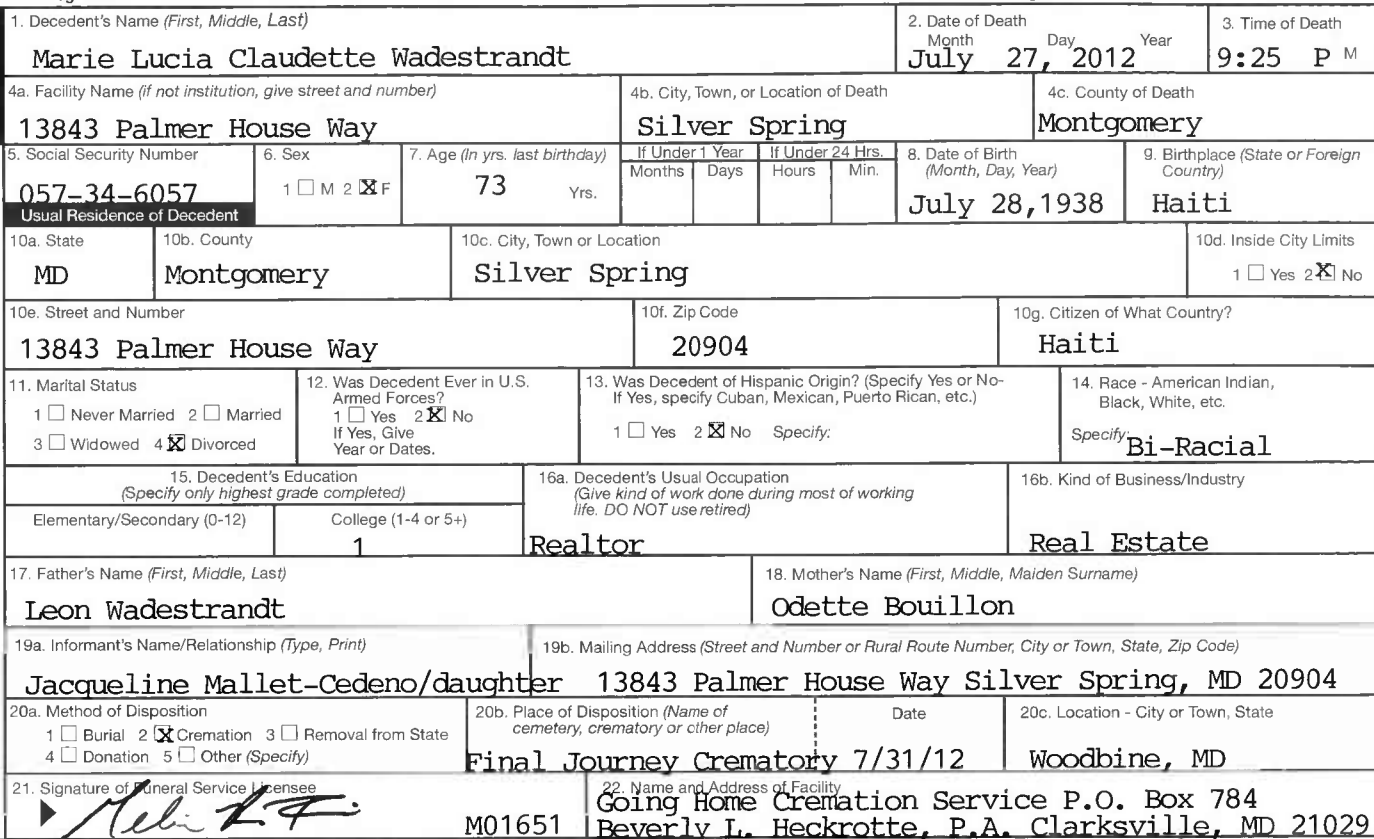 1. Decedent's Name (First, Middle, Last)
Marie Lucia Claudette Wadestrandt
2. Date of Death
Month Day Year
July 27, 2012
3. Time of Death
9:25 P M
4a. Facility Name (if not institution, give street and number)
13843 Palmer House Way
4b. City, Town, or Location of Death
Silver Spring
4c. County of Death
Montgomery
5. Social Security Number
057-34-6057
6. Sex
1 ☐ M 2 ☒ F
7. Age (In yrs. last birthday)
73 Yrs.
If Under 1 Year
Months Days
If Under 24 Hrs.
Hours Min.
8. Date of Birth
(Month, Day, Year)
July 28,1938
9. Birthplace (State or Foreign
Country)
Haiti
Usual Residence of Decedent
10a. State
MD
10b. County
Montgomery
10c. City, Town or Location
Silver Spring
10d. Inside City Limits
1 ☐ Yes 2 ☒ No
10e. Street and Number
13843 Palmer House Way
10f. Zip Code
20904
10g. Citizen of What Country?
Haiti
11. Marital Status
1 ☐ Never Married 2 ☐ Married
3 ☐ Widowed 4 ☒ Divorced
12. Was Decedent Ever in U.S.
Armed Forces?
1 ☐ Yes 2 ☒ No
If Yes, Give
Year or Dates.
13. Was Decedent of Hispanic Origin? (Specify Yes or No-
If Yes, specify Cuban, Mexican, Puerto Rican, etc.)
1 ☐ Yes 2 ☒ No Specify:
14. Race - American Indian,
Black, White, etc.
Specify: Bi-Racial
15. Decedent's Education
(Specify only highest grade completed)
Elementary/Secondary (0-12)
College (1-4 or 5+)
1
16a. Decedent's Usual Occupation
(Give kind of work done during most of working
life. DO NOT use retired)
Realtor
16b. Kind of Business/Industry
Real Estate
17. Father's Name (First, Middle, Last)
Leon Wadestrandt
18. Mother's Name (First, Middle, Maiden Surname)
Odette Bouillon
19a. Informant's Name/Relationship (Type, Print)
Jacqueline Mallet-Cedeno/daughter
19b. Mailing Address (Street and Number or Rural Route Number, City or Town, State, Zip Code)
13843 Palmer House Way Silver Spring, MD 20904
20a. Method of Disposition
1 ☐ Burial 2 ☒ Cremation 3 ☐ Removal from State
4 ☐ Donation 5 ☐ Other (Specify)
20b. Place of Disposition (Name of
cemetery, crematory or other place)
Final Journey Crematory
Date
7/31/12
20c. Location - City or Town, State
Woodbine, MD
21. Signature of Funeral Service Licensee
M01651
22. Name and Address of Facility
Going Home Cremation Service P.O. Box 784
Beverly L. Heckrotte, P.A. Clarksville, MD 21029